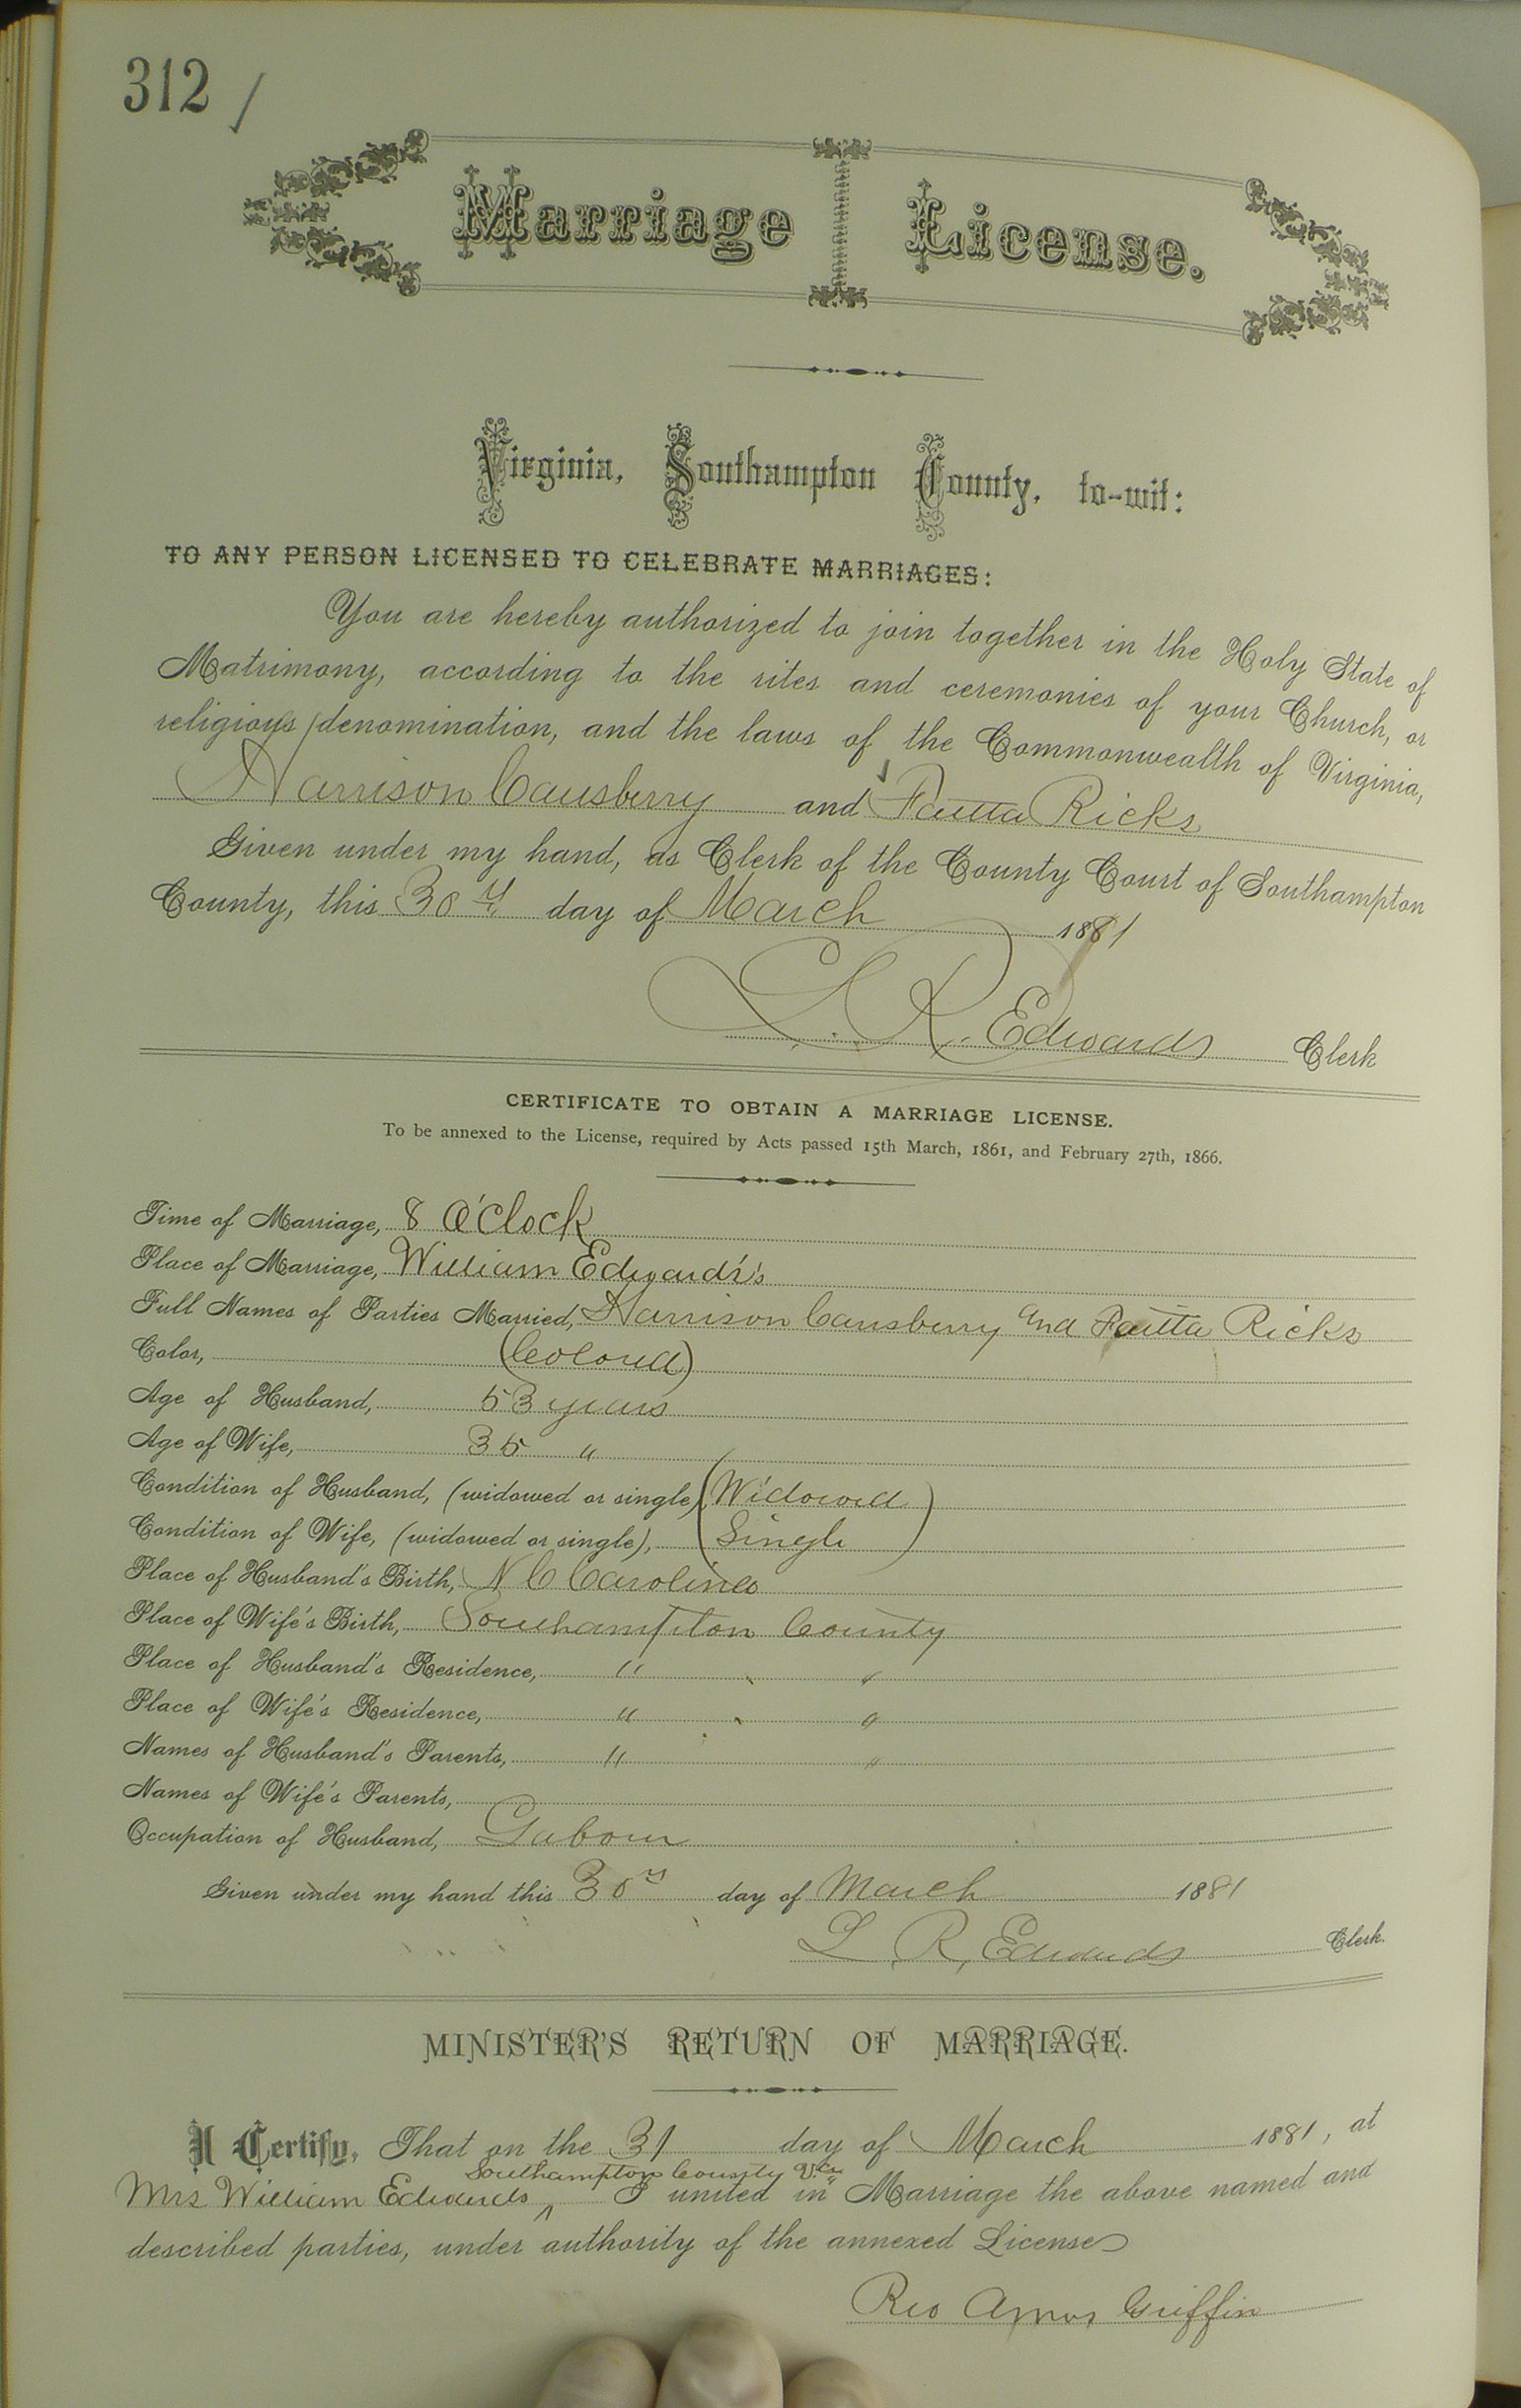 312 /
Marriage License.
Virginia, Southampton County, to-wit:
TO ANY PERSON LICENSED TO CELEBRATE MARRIAGES:
You are hereby authorized to join together in the Holy State of
Matrimony, according to the rites and ceremonies of your Church, or
religious denomination, and the laws of the Commonwealth of Virginia,
Harrison Causberry and Ricks
Given under my hand, as Clerk of the County Court of Southampton
County, this 30th day of March 1881
L. R. Edwards Clerk
CERTIFICATE TO OBTAIN A MARRIAGE LICENSE.
To be annexed to the License, required by Acts passed 15th March, 1861, and February 27th, 1866.
Time of Marriage, 8 O'Clock
Place of Marriage, William Edwards's
Full Names of Parties Married, Harrison Causberry and Ricks
Color, (Colored)
Age of Husband, 53 years
Age of Wife, 35 "
Condition of Husband, (widowed or single), (Widowed)
Condition of Wife, (widowed or single), (Single)
Place of Husband's Birth, N C Carolina
Place of Wife's Birth, Southampton County
Place of Husband's Residence, " "
Place of Wife's Residence, " "
Names of Husband's Parents, " "
Names of Wife's Parents,
Occupation of Husband, Labour
Given under my hand this 30th day of March 1881
L. R, Edwards Clerk.
MINISTER'S RETURN OF MARRIAGE.
I Certify, That on the 31 day of March 1881, at
Southampton County Va
Mrs William Edwards ^ I united in Marriage the above named and
described parties, under authority of the annexed License
Rev Amos Griffin